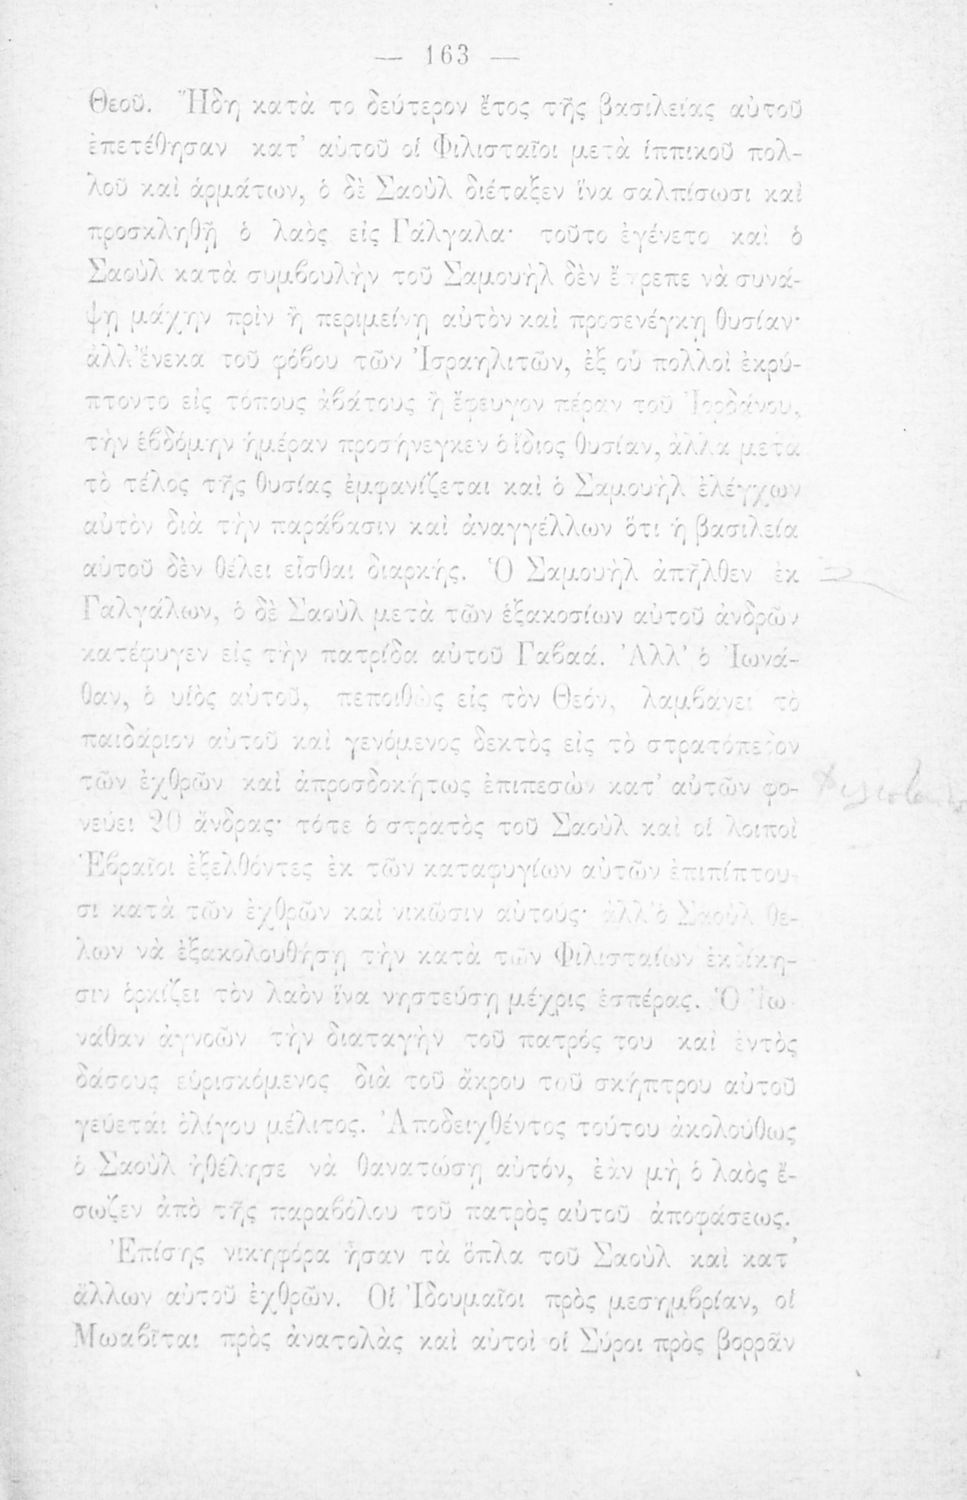 — 163 —
Θεοῦ. Ἤδη κατὰ το δεύτερον ἔτος τῆς βασιλείας αὐτοῦ
ἐπετέθησαν κατ' αὐτοῦ οἱ Φιλισταῖοι μετὰ ἱππικοῦ πολ-
λοῦ καὶ ἁρμάτων, ὁ δὲ Σαοὺλ διέταξεν ἵνα σαλπίσωσι καὶ
προσκληθῇ ὁ λαὸς εἰς Γάλγαλα· τοῦτο ἐγένετο καὶ ὁ
Σαοὺλ κατὰ συμβουλὴν τοῦ Σαμουὴλ δὲν ἔπρεπε νὰ συνά-
ψῃ μάχην πρὶν ἢ περιμείνῃ αὐτὸν καὶ προσενέγκῃ θυσίαν·
ἀλλ' ἕνεκα τοῦ φόβου τῶν Ἰσραηλιτῶν, ἐξ οὗ πολλοὶ ἐκρύ-
πτοντο εἰς τόπους ἀβάτους ἢ ἔφευγον πέραν τοῦ Ἰορδάνου,
τὴν ἑβδόμην ἡμέραν προσήνεγκεν ὁ ἴδιος θυσίαν, ἀλλα μετα
τὸ τέλος τῆς θυσίας ἐμφανίζεται καὶ ὁ Σαμουὴλ ἐλέγχων
αὐτὸν διὰ τὴν παράβασιν καὶ ἀναγγέλλων ὅτι ἡ βασιλεία
αὐτοῦ δὲν θέλει εἶσθαι διαρκής. Ὁ Σαμουὴλ ἀπῆλθεν ἐκ
Γαλγάλων, ὁ δὲ Σαοὺλ μετὰ τῶν ἑξακοσίων αὐτοῦ ἀνδρῶν
κατέφυγεν εἰς τὴν πατρίδα αὐτοῦ Γαβαά. Ἀλλ' ὁ Ἰωνά-
θαν, ὁ υἱὸς αὐτοῦ, πεποιθὼς εἰς τὸν Θεόν, λαμβάνει τὸ
παιδάριον αὐτοῦ καὶ γενόμενος δεκτὸς εἰς τὸ στρατόπεδον
τῶν ἐχθρῶν καὶ ἀπροσδοκήτως ἐπιπεσὼν κατ' αὐτῶν φο-
νεύει 20 ἄνδρας· τότε ὁ στρατὸς τοῦ Σαοὺλ καὶ οἱ λοιποὶ
Ἑβραῖοι ἐξελθόντες ἐκ τῶν καταφυγίων αὐτῶν ἐπιπίπτου-
σι κατὰ τῶν ἐχθρῶν καὶ νικῶσιν αὐτούς· ἀλλ' ὁ Σαοὺλ θέ-
λων νὰ ἐξακολουθήσῃ τὴν κατὰ τῶν Φιλισταίων ἐκδίκη-
σιν ὁρκίζει τὸν λαὸν ἵνα νηστεύσῃ μέχρις ἑσπέρας. Ὁ Ἰω-
νάθαν ἀγνοῶν τὴν διαταγὴν τοῦ πατρός του καὶ ἐντὸς
δάσους εὑρισκόμενος διὰ τοῦ ἄκρου τοῦ σκήπτρου αὐτοῦ
γεύεται ὀλίγου μέλιτος. Ἀποδειχθέντος τούτου ἀκολούθως
ὁ Σαοὺλ ἠθέλησε νὰ θανατώσῃ αὐτόν, ἐὰν μὴ ὁ λαὸς ἔ-
σωζεν ἀπὸ τῆς παραβόλου τοῦ πατρὸς αὐτοῦ ἀποφάσεως.
Ἐπίσης νικηφόρα ἦσαν τὰ ὅπλα τοῦ Σαοὺλ καὶ κατ'
ἄλλων αὐτοῦ ἐχθρῶν. Οἱ Ἰδουμαῖοι πρὸς μεσημβρίαν, οἱ
Μωαβῖται πρὸς ἀνατολὰς καὶ αὐτοὶ οἱ Σύροι πρὸς βορρᾶν